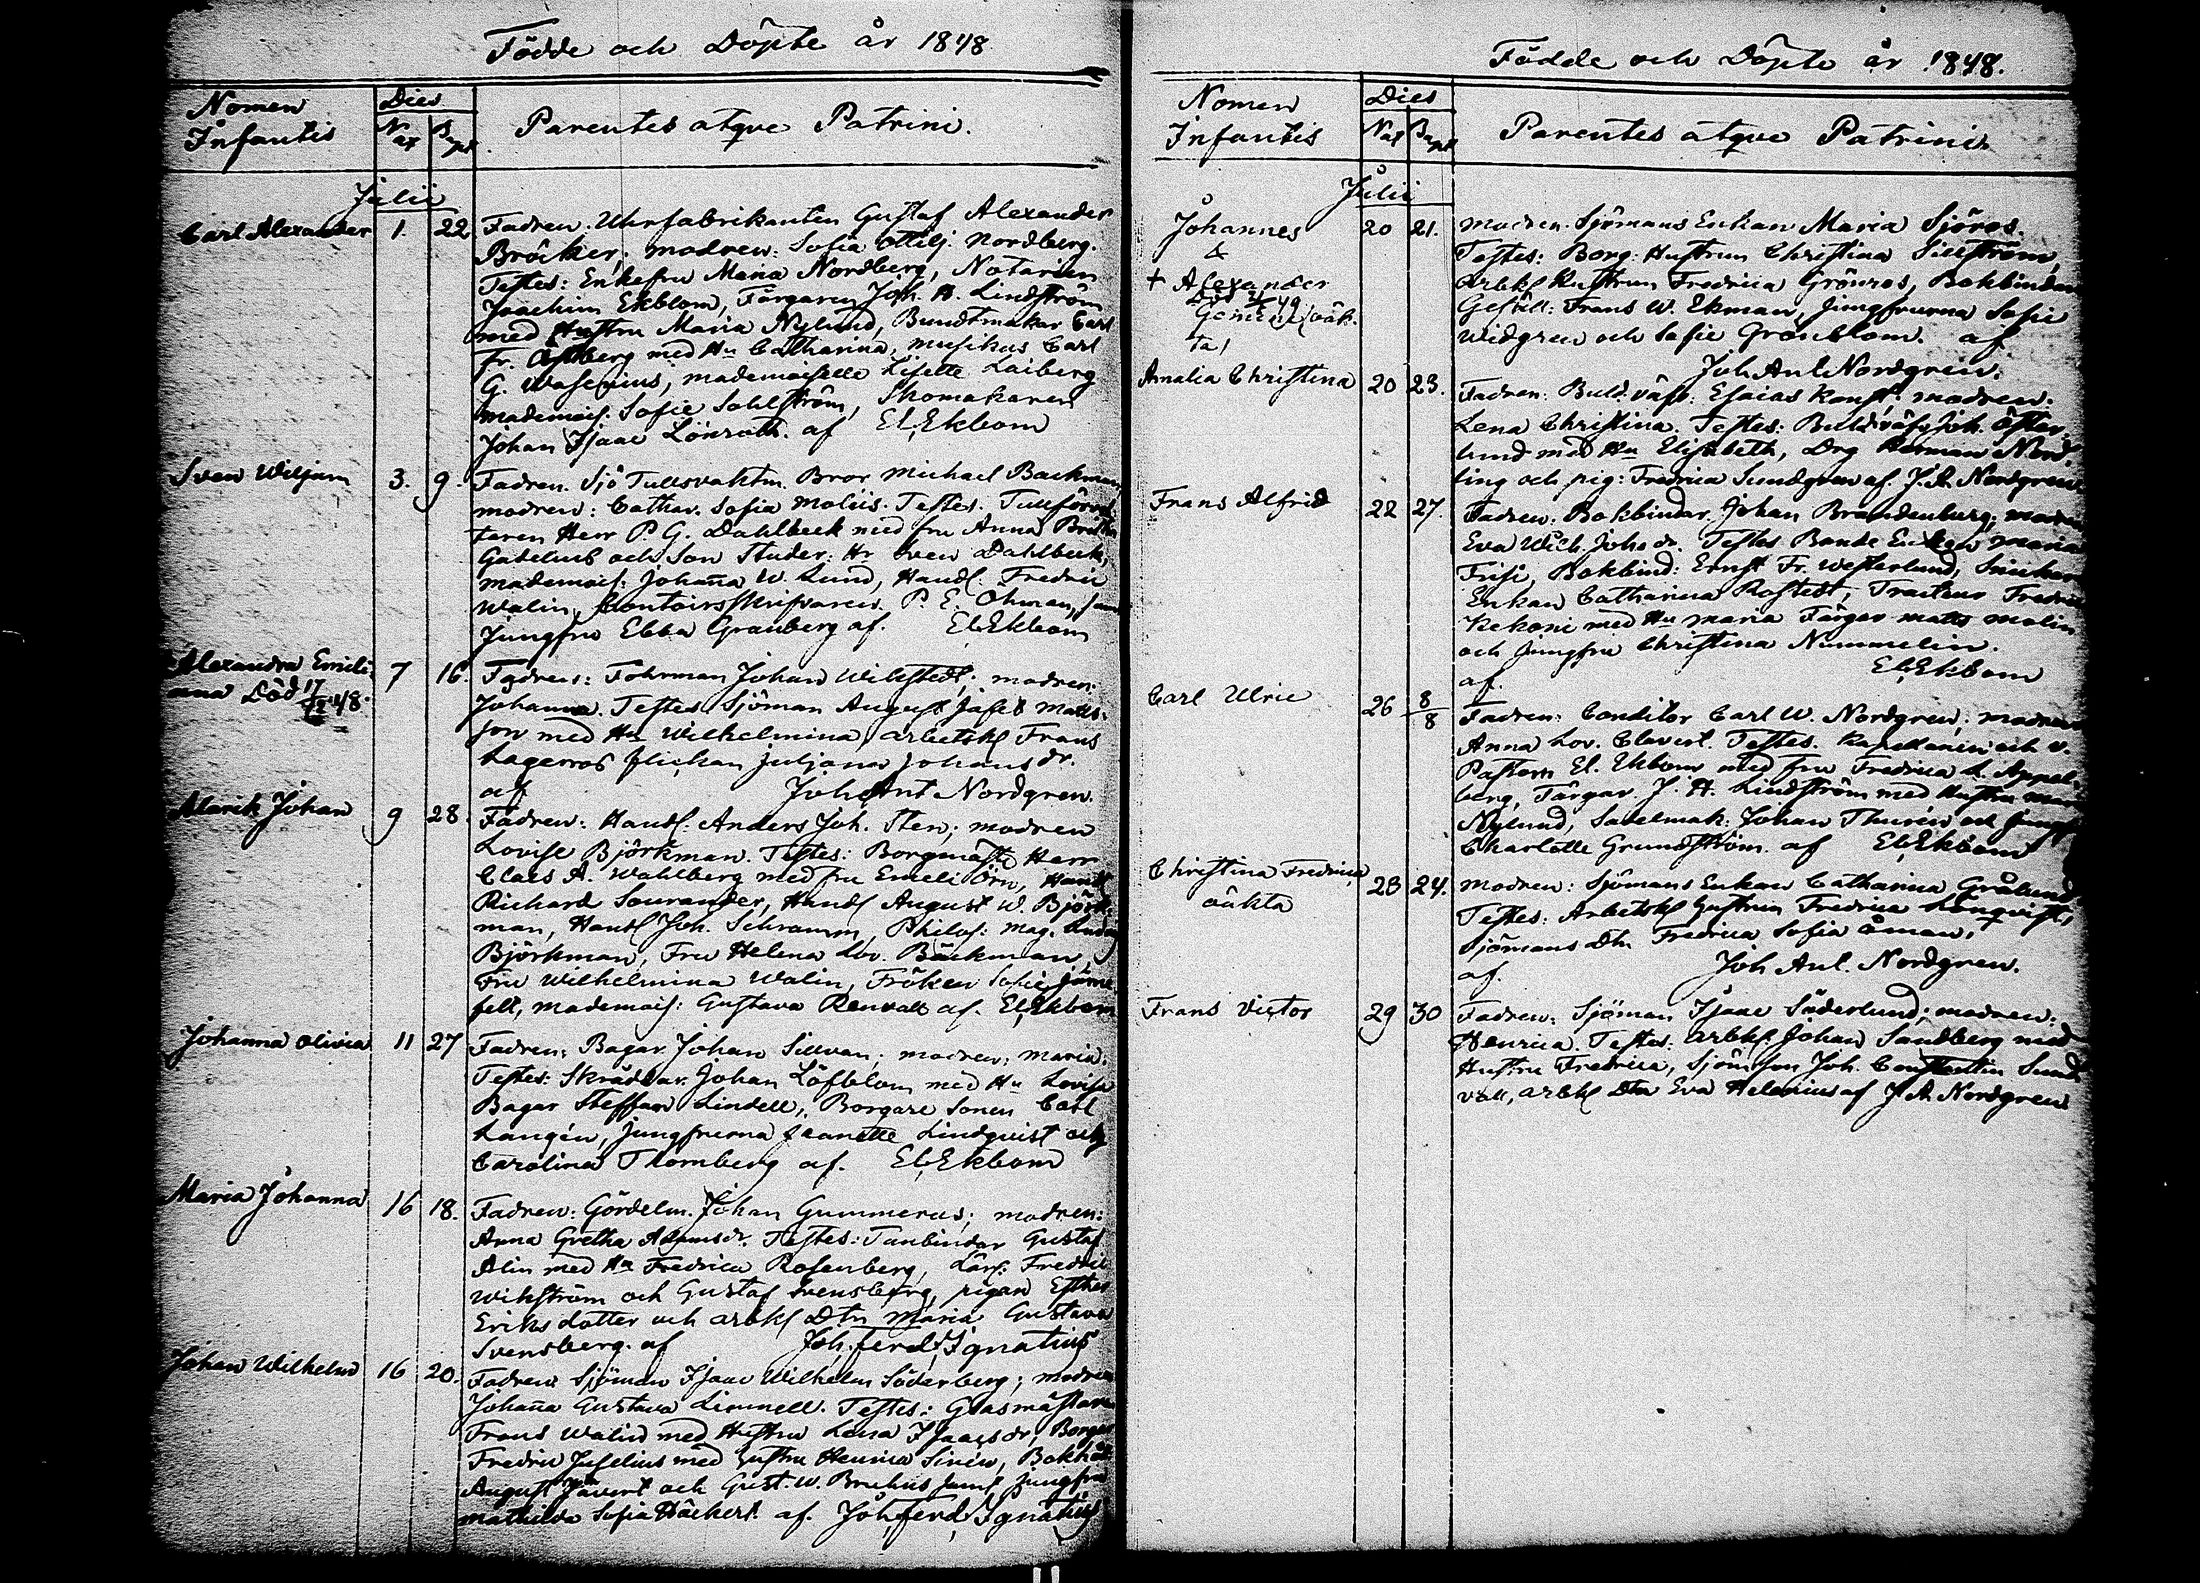 Födde och Döpte år 1848
Nomen Infantis
Dies
Nat
Bapt
Parentes atqve Patrini.
Julii
Carl Alexander 1. 22 Fadren: Uhrfabrikanten Gustaf Alexander
Bröcker; modren: Sofia Ottilj. Nordberg.
Testes: Enkefru Maria Nordberg, Notarien
Joachim Ekblom, Färgaren Joh. H. Lindström
med Hustru Maria Nylund, Buntmakar Carl
Fr. Östberg med Hu Catharina, musikus Carl
G. Wasenius, mademoiselle Lisette Laiberg
mademois. Sofie Sohlström, Skomakaren
Johan Isaac Lönroth. af El. Ekbom
Sven Wiljam 3. 9. Fadren. Sjö Tullsvaktm. Bror Michael Backman,
modren: Cathar. Sofia Moliis. Testes. Tullförval
taren Herr P. G. Dahlbeck med fru Anna
och Son Studer: Hr Sven Dahlbeck,
mademois: Johanna W. Lund, Handl. Fredric
Walin, Contoirsskrifvaren P. E. Öhman, samt
Jungfru Ebba Granberg af. El. Ekbom
Alexandra Emeli 7 16. Fadren: Fohrman Johan Wikstedt; modren:
ana Död 17/12 48.
Johanna. Testes Sjöman August Jafet Matts-
son med Hu Wilhelmina, arbetsk Frans
Lagerros flickan Juljana Johansdr.
af Joh Ant Nordgren.
Alarik Johan 9 28. Fadren: Handl. Anders Joh. Sten; modren
Lovise Björkman. Testes: Borgmäst Herr
Claes A. Wahlberg med fru Emeli Örn, Handl
Richard Sourander, Handl August W. Björk-
man, Handl Joh. Schramm, Philos: mag. Ludvig
Björkman, Fru Helena Lov. Bäckman,
Fru Wilhelmina Walin, Fröken Sofie Järne
felt, mademois: Gustava Renvall af. El. Ekbom
Johanna Olivia 11 27 Fadren: Bagar Johan Sillvan; modren: Maria.
Testes: Skräddar. Johan Löfblom med Hu Lovisa
Bagar Steffan Lindell, Borgare Sonen Carl
Langén, Jungfrurna Jeanette Lindqvist och
Carolina Thornberg af. El. Ekbom
Maria Johanna 16 18. Fadren: Gördelm. Johan Gummerus; modren:
Anna Gretha Adamsdr. Testes: Tunbindar Gustaf
Alin med Hu Fredrica Rosenberg, Lärl: Fredric
Wikström och Gustaf Svensberg, pigan Esther
Eriksdotter och arbk Dtn Maria Gustava
Svensberg. af Joh. Ferd. Ignatius
Johan Wilhelm 16 20. Fadren Sjöman Isaac Wilhelm Söderberg; modren
Johanna Gustava Limnell. Testes: Glasmästare
Frans Walin med Hustru Lena Isaacsdr, Borgar
Fredric Juselius med Hustru Henrica Sirén, Bokhåll
August Jåvert och Gust. W. Bruhns samt jungfru
Mathilda Sofia Häckert af. Joh. Ferd. Ignatius
Födde och Döpte år 1848.
Nomen Infantis
Dies
Nat
Bapt
Parentes atqve Patrini
Julii
Johannes 20 21. Modren: Sjömans Enkan Maria Sjöros.
&
+ Alexander
Död 49
Testes: Borg: Hustrun Christina Sillström,
Arbk Hustrun Fredrica Grönros, Bokbindar
Gesäll: Frans W. Ekman, Jungfrurna Sofie
Widgren och Sofie Grönblom. af
Joh. Ant. Nordgren.
Amalia Christina 20 23. Fadren: Buld. väfv: Esaias Konst: modren.
Lena Christina. Testes: Buldväfv Joh. Öster
lund med Hu Elisabeth, Drg Herman Nord-
ling och pig: Fredrica Sundgren af. J. A. Nordgren.
Frans Alfrid 22 27. Fadren: Bokbindar. Johan Brandenburg; modren
Eva Wilh. Johsdr. Testes Bonde Enkan Maria
Frisi, Bokbind: Ernst Fr. Westerlund, Snickar
Enkan Catharina Rostedt, Tracteur Fredric
Kekoni med Hu Maria Färgar Matts Malin
och Jungfru Christina Nummelin.
af. El. Ekbom
Carl Ulric 26 8/8 Fadren: Conditor Carl W. Nordgren; modren
Anna Lov. Clavert. Testes. Kapellanen och v.
Pastorn El. Ekbom med fru Fredrica L. Appel-
berg, Färgar. J. H. Lindström med Hustru Maria
Nylund, Sadelmak: Johan Thurén och Jungf
Charlotte Grundström. af El. Ekbom
Christina Fredrica 23 24. Modren: Sjömans Enkan Catharina Grålund
oäkta
Testes: Arbetsk Hustrun Fredrica Lönqvist,
Sjömans Dtn Fredrica Sofia Öman,
af. Joh Ant. Nordgren.
Frans Victor 29 30 Fadren: Sjöman Isaac Söderlund; modren:
Henrica. Testes: arbk. Johan Sandberg med
Hustru Fredrica, Sjöm Son Joh. Constantin Sund
vall, arbk Dtn Eva Helenius af J. A. Nordgren